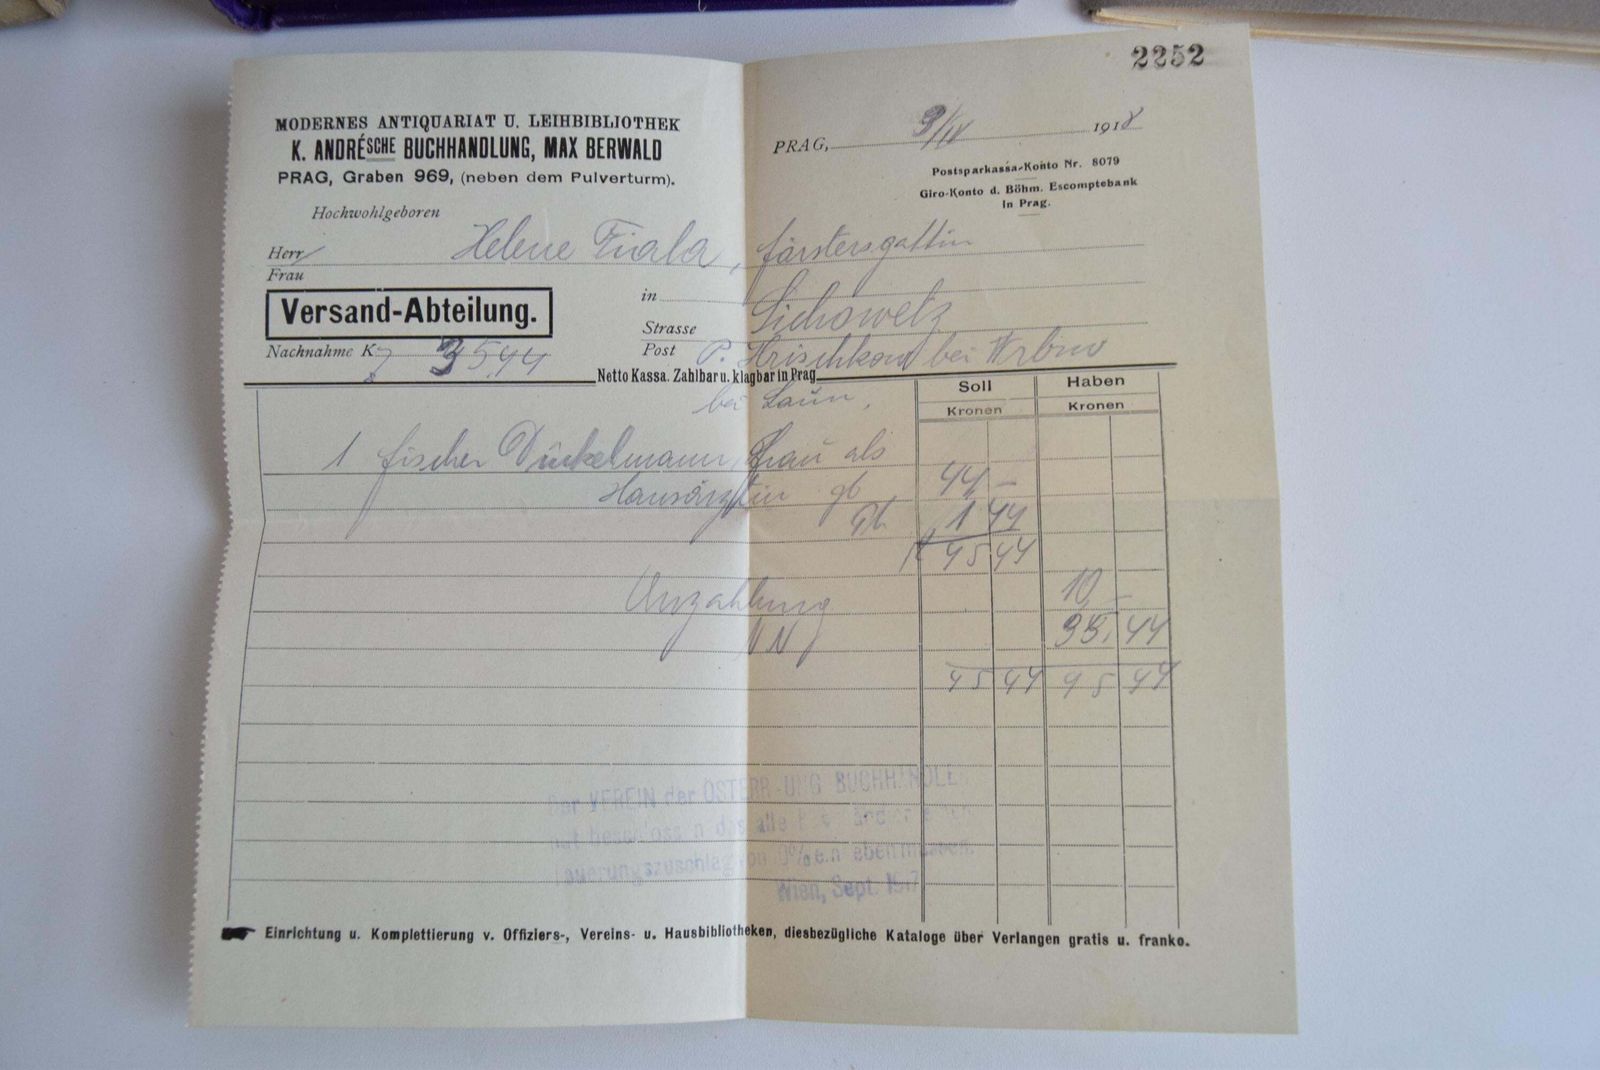 2252
MODERNES ANTIQUARIAT U. LEIHBIBLIOTHEK
K. ANDRÉSCHE BUCHHANDLUNG, MAX BERWALD
PRAG, Graben 969, (neben dem Pulverturm).
PRAG, 9/IV 1918
Postsparkassa-Konto Nr. 8079
Giro-Konto d. Böhm. Escomptebank
in Prag.
Hochwohlgeboren
Herr
Frau
Helene Fiala, Förstersgattin
in
Versand-Abteilung.
Strasse Lichowetz
Nachnahme K 35.44
Post P. Hrischkow bei Wrbno
Netto Kassa. Zahlbar u. klagbar in Prag.
bei Laun,
Soll Haben
Kronen Kronen
1 Fischer Dückelmann, Frau als
Hausärztin gb 44 –
1 44
K 45 44
Anzahlung 10 –
NN 35. 44
45 44 45 44
Der VEREIN der ÖSTERR. UNG BUCHHÄNDLER
hat beschlossen das alle
Teuerungszuschlag von
Wien, Sept. 1917
Einrichtung u. Komplettierung v. Offiziers-, Vereins- u. Hausbibliotheken, diesbezügliche Kataloge über Verlangen gratis u. franko.